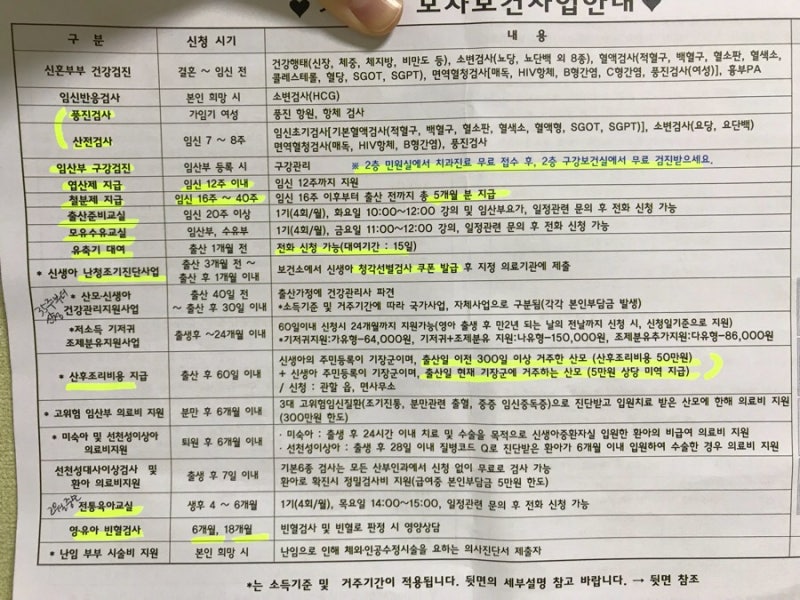 모자보건사업안내♥
구 분 신청 시기 내 용
신혼부부 건강검진 결혼 ~ 임신 전 건강행태(신장, 체중, 체지방, 비만도 등), 소변검사(뇨당, 뇨단백 외 8종), 혈액검사(적혈구, 백혈구, 혈소판, 혈색소,
콜레스테롤, 혈당, SGOT, SGPT), 면역혈청검사[매독, HIV항체, B형간염, C형간염, 풍진검사(여성)], 흉부PA
임신반응검사 본인 희망 시 소변검사(HCG)
풍진검사 가임기 여성 풍진 항원, 항체 검사
산전검사 임신 7 ~ 8주 임신초기검사[기본혈액검사(적혈구, 백혈구, 혈소판, 혈색소, 혈액형, SGOT, SGPT)], 소변검사(요당, 요단백)
면역혈청검사(매독, HIV항체, B형간염), 풍진검사
임산부 구강검진 임산부 등록 시 구강관리 ※ 2층 민원실에서 치과진료 무료 접수 후, 2층 구강보건실에서 무료 검진받으세요.
엽산제 지급 임신 12주 이내 임신 12주까지 지원
철분제 지급 임신 16주 ~ 40주 임신 16주 이후부터 출산 전까지 총 5개월 분 지급
출산준비교실 임신 20주 이상 1기(4회/월), 화요일 10:00~12:00 강의 및 임산부요가, 일정관련 문의 후 전화 신청 가능
모유수유교실 임산부, 수유부 1기(4회/월), 금요일 11:00~12:00 강의, 일정관련 문의 후 전화 신청 가능
유축기 대여 출산 1개월 전 전화 신청 가능(대여기간 : 15일)
* 신생아 난청조기진단사업 출산 3개월 전 ~
출산 후 1개월 이내 보건소에서 신생아 청각선별검사 쿠폰 발급 후 지정 의료기관에 제출
* 산모·신생아
건강관리지원사업 출산 40일 전
~ 출산 후 30일 이내 출산가정에 건강관리사 파견
*소득기준 및 거주기간에 따라 국가사업, 자체사업으로 구분됨(각각 본인부담금 발생)
*저소득 기저귀
조제분유지원사업 출생후 ~24개월 이내 60일이내 신청시 24개월까지 지원가능(영아 출생 후 만2년 되는 날의 전날까지 신청 시, 신청일기준으로 지원)
*기저귀지원:가유형-64,000원, 기저귀+조제분유 지원:나유형-150,000원, 조제분유추가지원:다유형-86,000원
* 산후조리비용 지급 출산 후 60일 이내 신생아의 주민등록이 기장군이며, 출산일 이전 300일 이상 거주한 산모 (산후조리비용 50만원)
+ 신생아 주민등록이 기장군이며, 출산일 현재 기장군에 거주하는 산모 (5만원 상당 미역 지급)
/ 신청 : 관할 읍, 면사무소
* 고위험 임산부 의료비 지원 분만 후 6개월 이내 3대 고위험임신질환(조기진통, 분만관련 출혈, 중증 임신중독증)으로 진단받고 입원치료 받은 산모에 한해 의료비 지원
(300만원 한도)
* 미숙아 및 선천성이상아
의료비지원 퇴원 후 6개월 이내 · 미숙아 : 출생 후 24시간 이내 치료 및 수술을 목적으로 신생아중환자실 입원한 환아의 비급여 의료비 지원
· 선천성이상아 : 출생 후 28일 이내 질병코드 Q로 진단받은 환아가 6개월 이내 입원하여 수술한 경우 의료비 지원
선천성대사이상검사 및
환아 의료비지원 출생 후 7일 이내 기본6종 검사는 모든 산부인과에서 신청 없이 무료로 검사 가능
환아로 확진시 정밀검사비 지원(급여중 본인부담금 5만원 한도)
전통육아교실 생후 4 ~ 6개월 1기(4회/월), 목요일 14:00~15:00, 일정관련 문의 후 전화 신청 가능
영·유아 빈혈검사 6개월, 18개월 빈혈검사 및 빈혈로 판정 시 영양상담
* 난임 부부 시술비 지원 본인 희망 시 난임으로 인해 체외·인공수정시술을 요하는 의사진단서 제출자
*는 소득기준 및 거주기간이 적용됩니다. 뒷면의 세부설명 참고 바랍니다. → 뒷면 참조